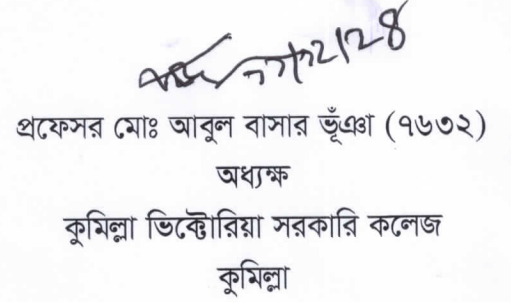 ১১/১২/২৪
প্রফেসর মোঃ আবুল বাসার ভূঁঞা (৭৬৩২)
অধ্যক্ষ
কুমিল্লা ভিক্টোরিয়া সরকারি কলেজ
কুমিল্লা